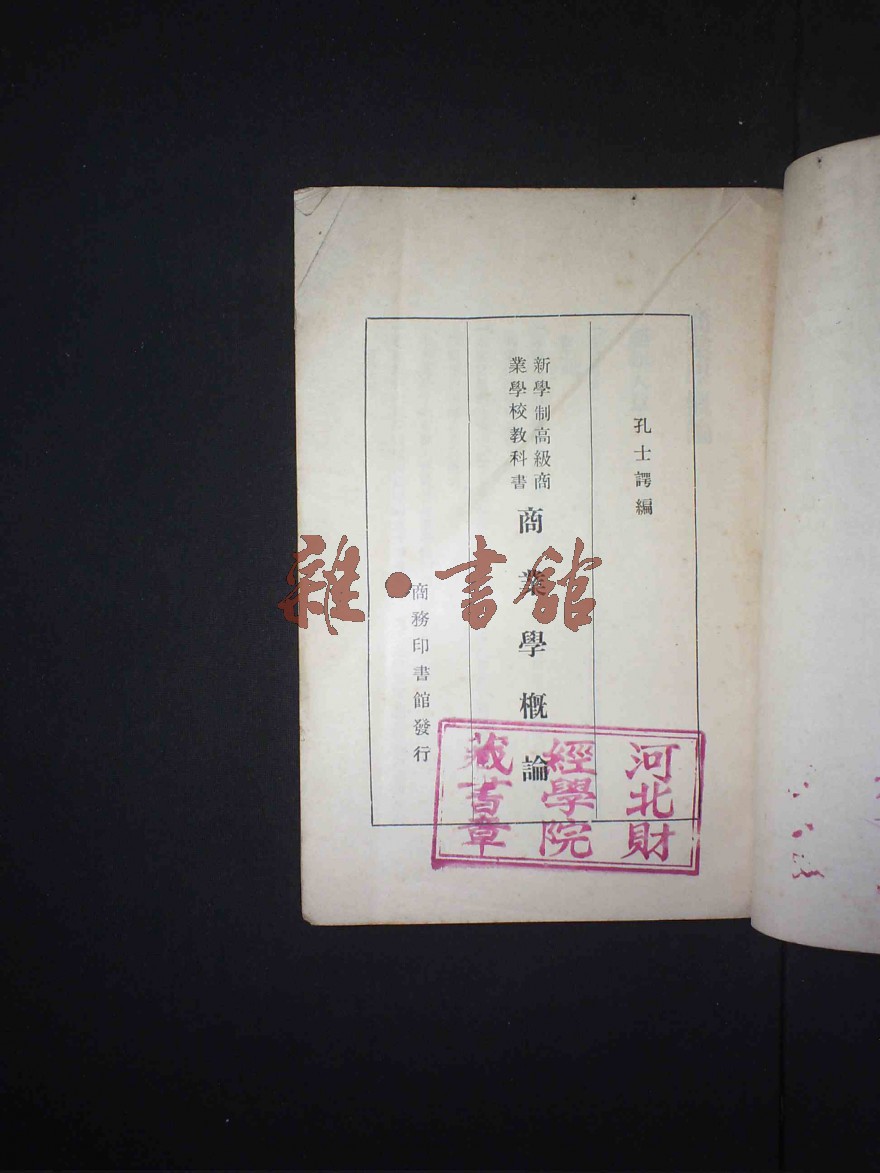 孔士諤編
新學制高級商
業學校教科書
商業學概論
商務印書館發行
河北財
經學院
藏書章
雜·書館